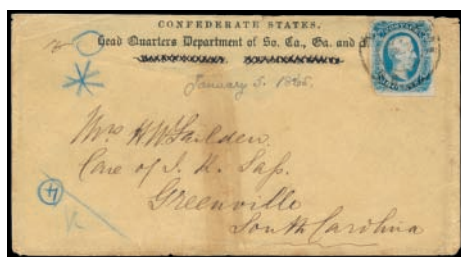 CONFEDERATE STATES.
Head Quarters Department of So. Ca., Ga. and
January 5. 1865.
Mrs H W
Care of J. K. Sass.
Greenville
South Carolina
4